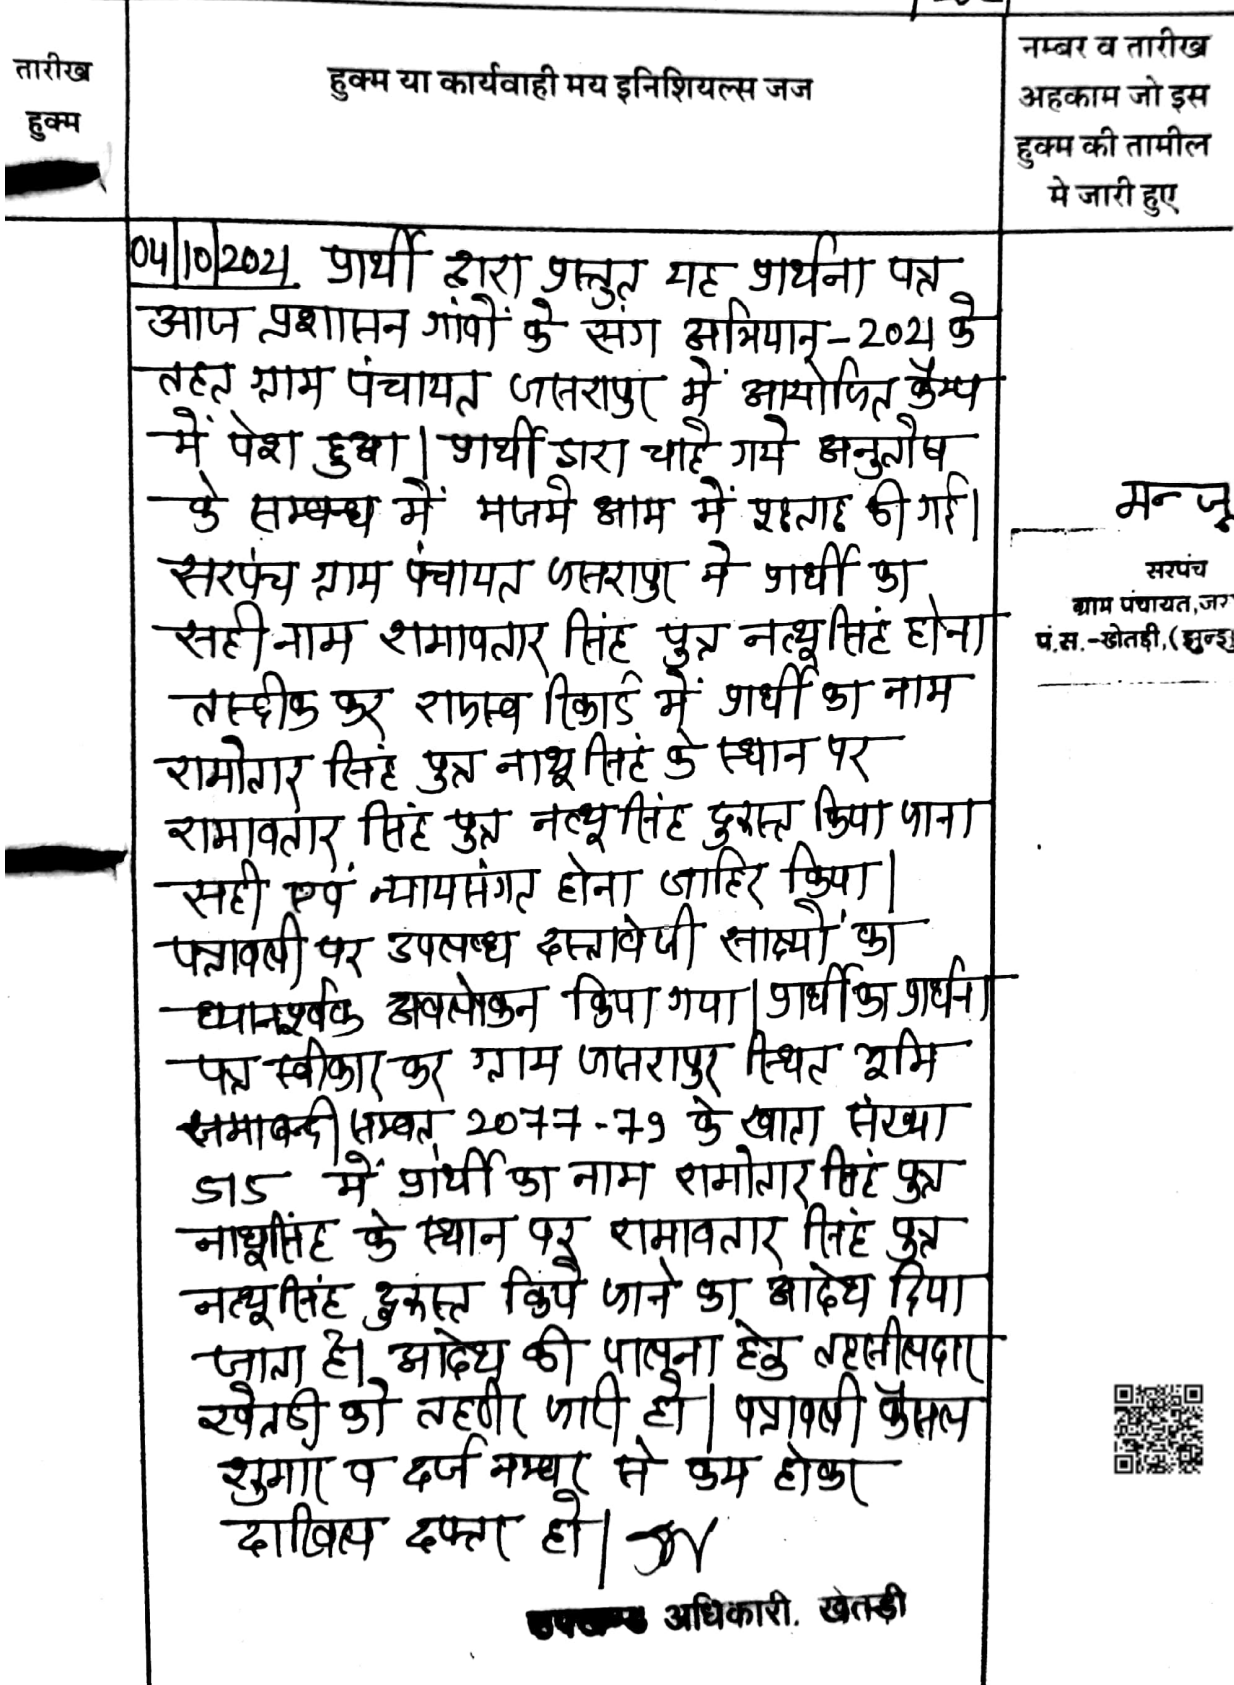 तारीख
हुक्म
हुक्म या कार्यवाही मय इनिशियल्स जज
नम्बर व तारीख
अहकाम जो इस
हुक्म की तामील
मे जारी हुए
04/10/2021. प्रार्थी द्वारा प्रस्तुत यह प्रार्थना पत्र
आज प्रशासन गांवों के संग अभियान-2021 के
तहत ग्राम पंचायत जसरापुर में आयोजित कैम्प
में पेश हुआ। प्रार्थी द्वारा चाहे गये अनुतोष
के सम्बन्ध में मजमे आम में की गई।
सरपंच ग्राम पंचायत जसरापुर ने प्रार्थी का
सही नाम रामावतार सिंह पुत्र नत्थूसिंह होना
तस्दीक कर राजस्व रिकार्ड में प्रार्थी का नाम
रामोतार सिंह पुत्र नाथूसिंह के स्थान पर
रामावतार सिंह पुत्र नत्थूसिंह दुरूस्त किया जाना
सही एवं न्यायसंगत होना जाहिर किया।
पत्रावली पर उपलब्ध दस्तावेजी साक्ष्यों का
ध्यानपूर्वक अवलोकन किया गया। प्रार्थी का प्रार्थना
पत्र स्वीकार कर ग्राम जसरापुर स्थित भूमि
जमाबन्दी सम्वत् 2077-79 के खाता संख्या
515 में प्रार्थी का नाम रामोतार सिंह पुत्र
नाथूसिंह के स्थान पर रामावतार सिंह पुत्र
नत्थूसिंह दुरूस्त किये जाने का आदेश दिया
जाता है। आदेश की पालना हेतु तहसीलदार
खेतडी को तहरीर जारी हो। पत्रावली फैसल
शुमार व दर्ज नम्बर से कम होकर
दाखिल दफ्तर हो।
उपखण्ड अधिकारी. खेतड़ी
मन्जू
सरपंच
ग्राम पंचायत,जर
पं.स.-खेतड़ी,(झुन्झु